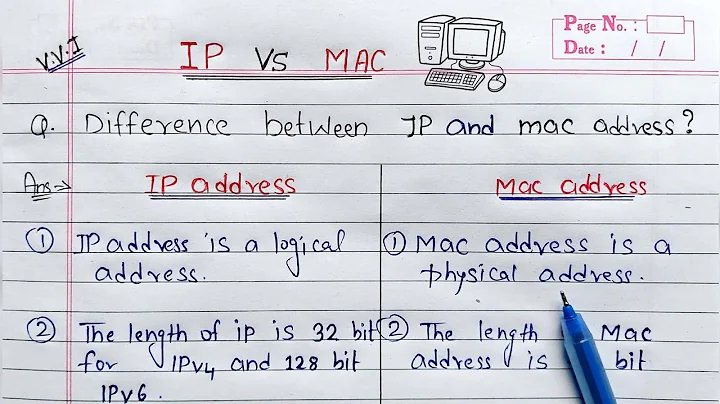 V.V.I
IP VS MAC
Page No. :
Date : / /
Q. Difference between IP and mac address?
Ans→
IP address
① IP address is a logical
address.
② The length of ip is 32 bit
for IPv4 and 128 bit
IPv6.
Mac address
① Mac address is a
physical address.
② The length Mac
address is bit